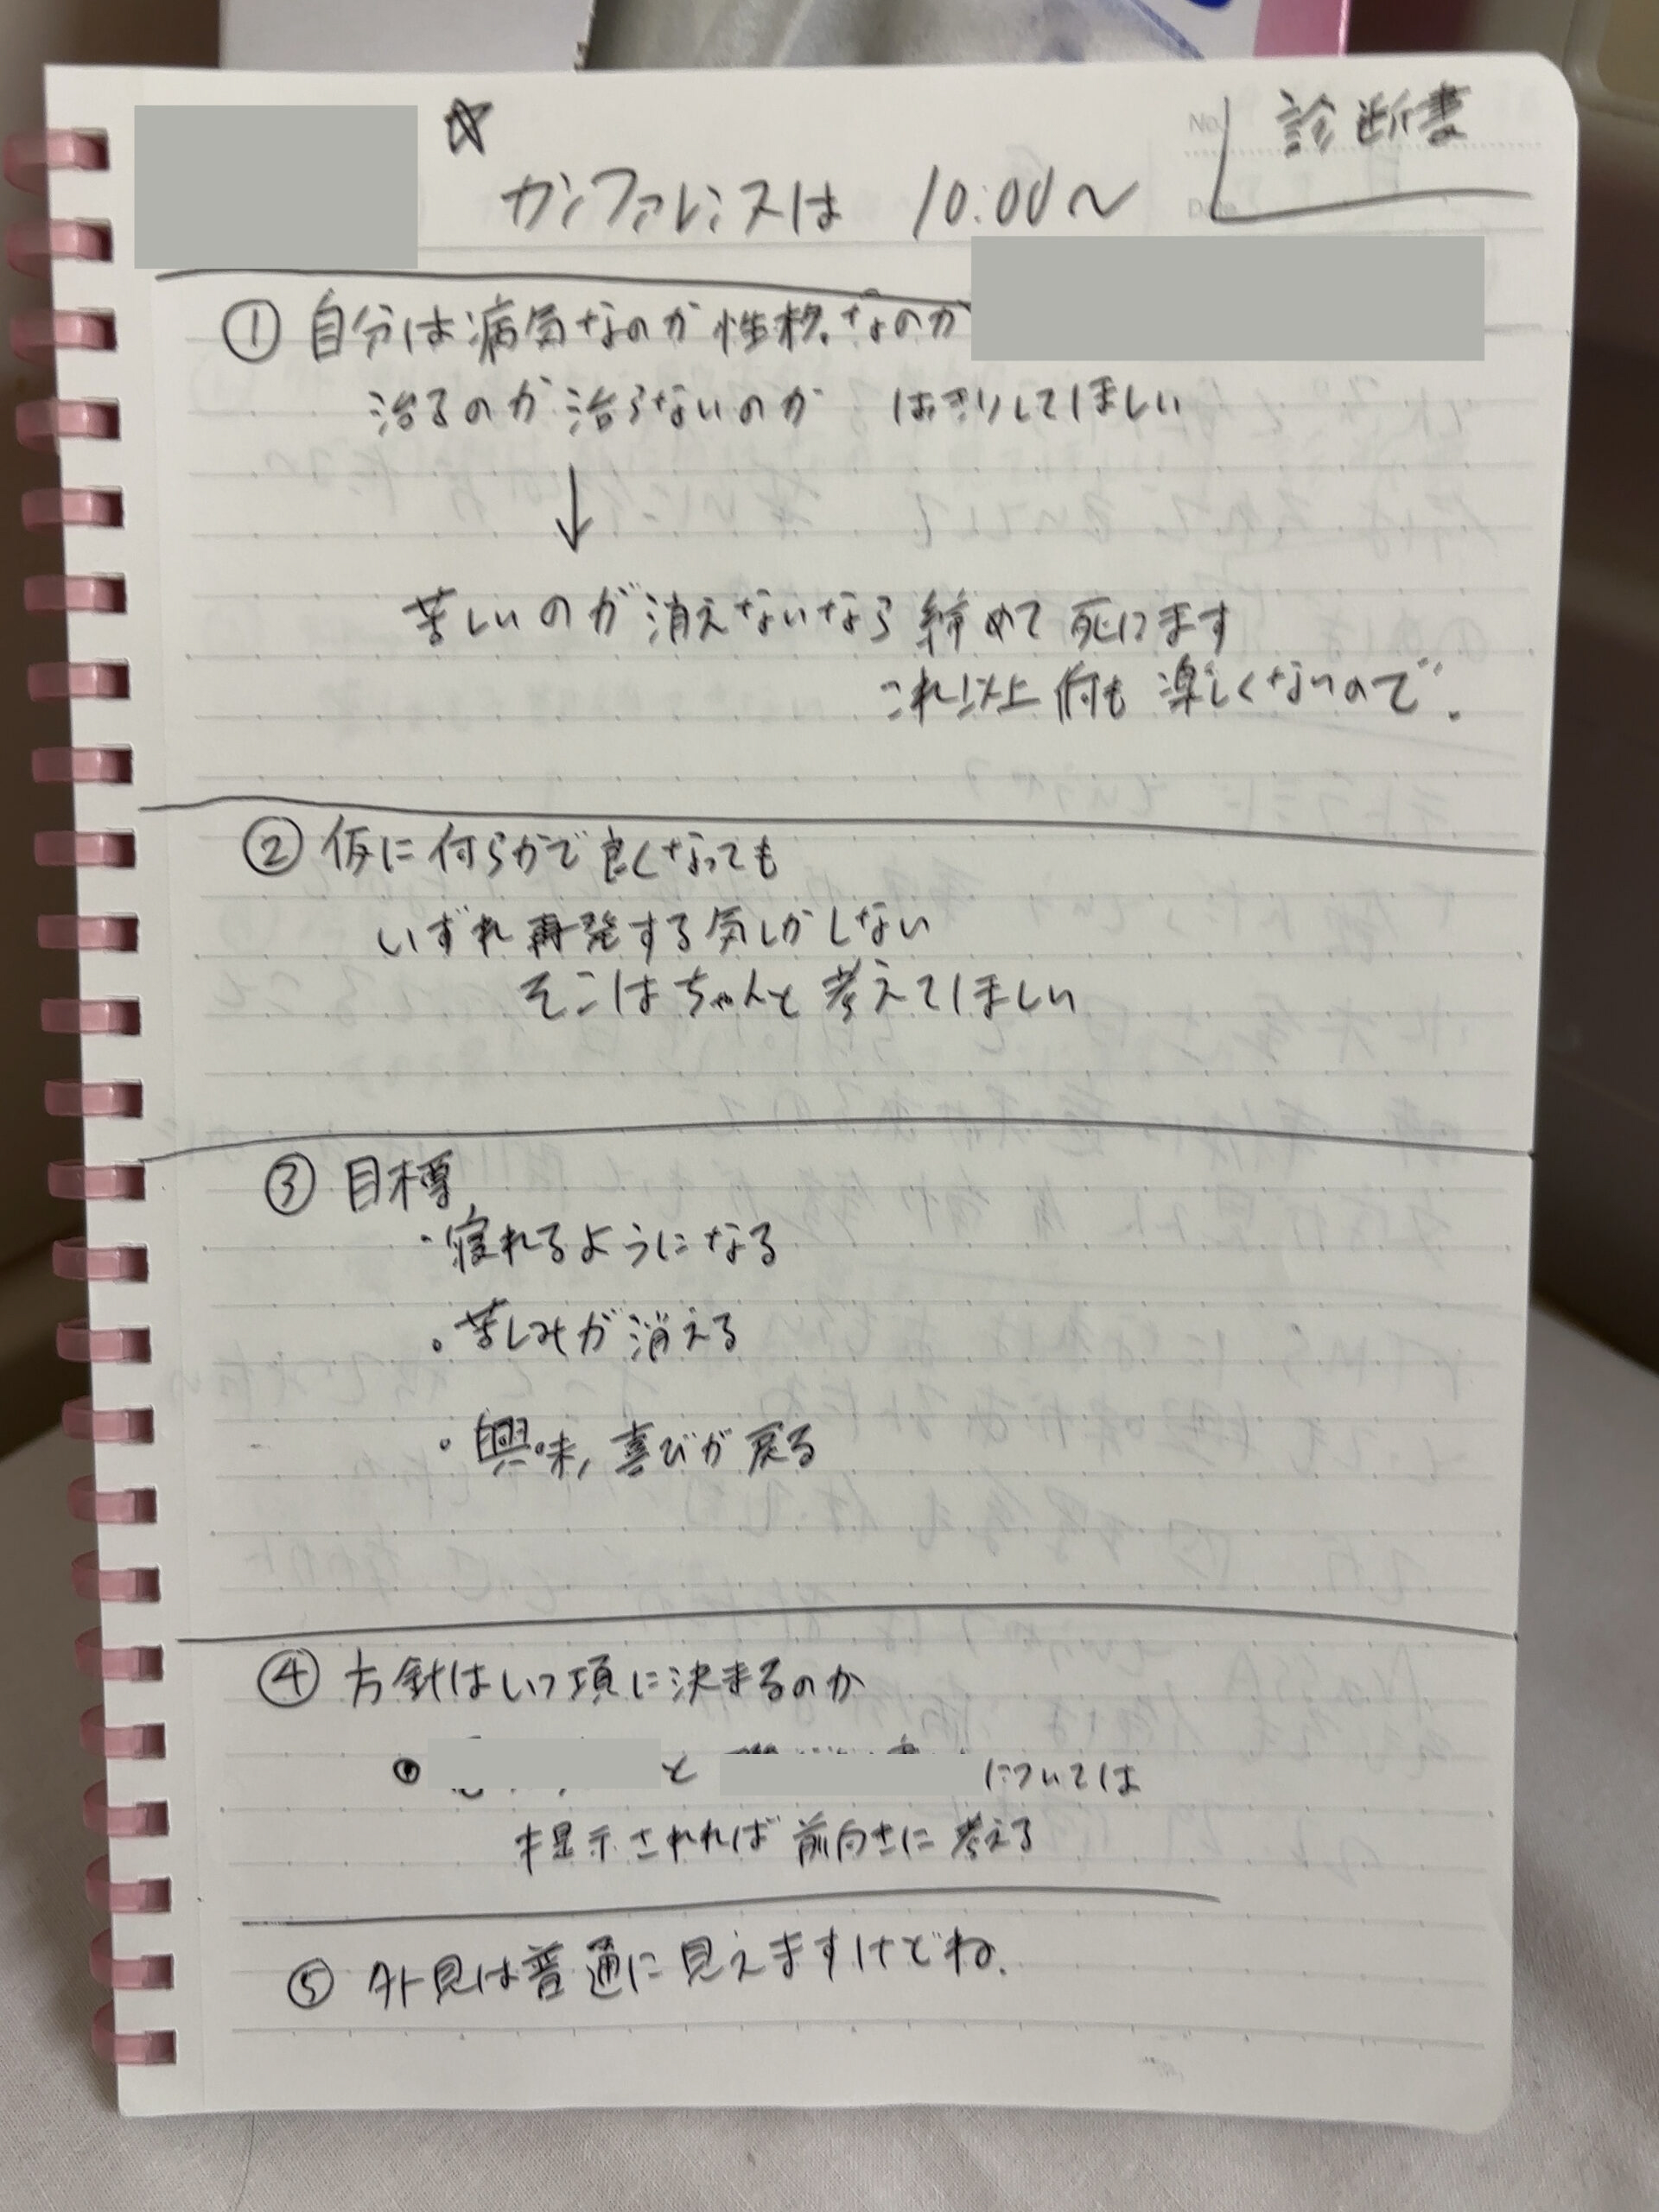 ☆
診断書
No.
Date
カンファレンスは 10:00〜
① 自分は病気なのか性格なのか
治るのか治らないのか はっきりしてほしい
↓
苦しいのが消えないなら 締めて 死にます
これ以上 何も 楽しくないので.
② 仮に何らかで良くなっても
いずれ再発する気しかしない
そこはちゃんと 考えてほしい
③ 目標
・寝れるようになる
・苦しみが消える
・興味, 喜びが戻る
④ 方針はいつ頃に決まるのか
と については
提示されれば 前向きに 考える
⑤ 外見は普通に見えますけどね.